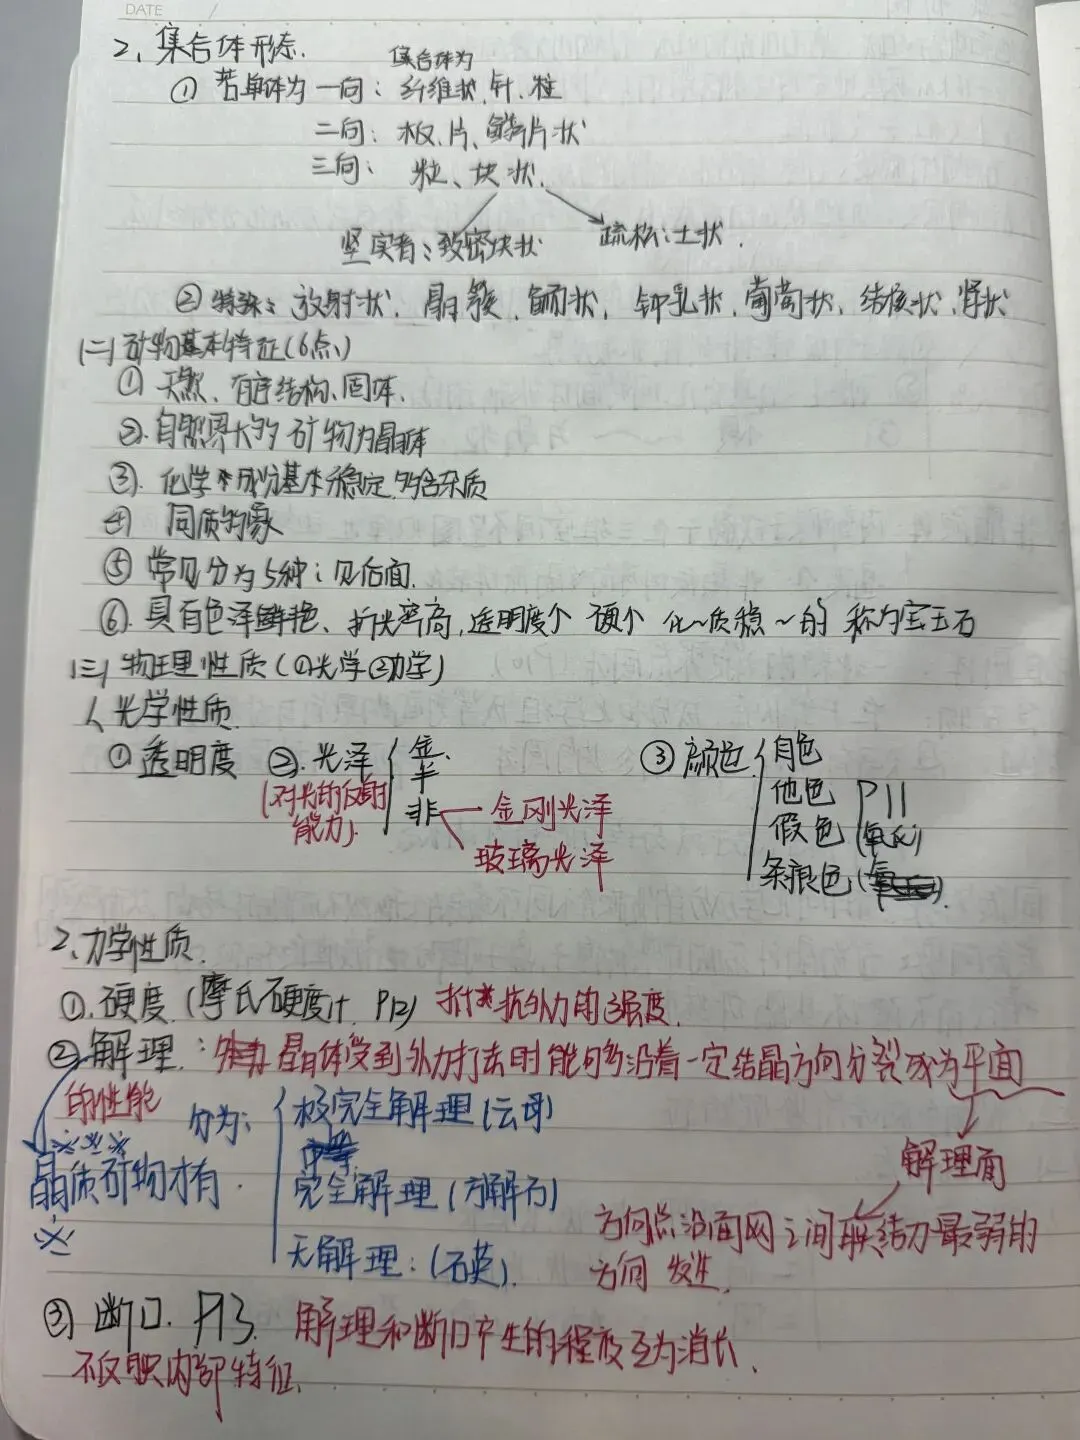 DATE /
2、集合体形态.
集合体为
① 若单体为 一向: 纤维状、针、柱
二向: 板、片、鳞片状
三向: 粒、块状.
坚实者:致密块状 疏松:土状.
② 特殊: 放射状、晶簇、鲕状、钟乳状、葡萄状、结核状、肾状
(二)矿物基本特征(6点)
① 天然、有序结构、固体.
②.自然界大多矿物为晶体
③.化学成分基本稳定,多含杂质
④ 同质多象
⑤ 常见分为5种:见后面.
⑥.具有色泽鲜艳、折光率高,透明度个 硬个 化~质稳~的 称为宝玉石
(三)物理性质(①光学②力学)
1、光学性质.
①透明度 ②.光泽 金. ③颜色 自色
(对光的反射能力). 半 他色 P11
非 金刚光泽 假色
玻璃光泽 条痕色
2、力学性质.
①.硬度.(摩氏硬度计 P12) 抗外力的强度.
②解理: 晶体受到外力打击时能够沿着一定结晶方向分裂成为平面
的性能 分为: 极完全解理(云母)
※※※ 解理面
晶质矿物才有. 完全解理(方解石)
※ 方向总沿面网之间联结力最弱的
无解理:(石英). 方向 发生.
③断口. P13. 解理和断口产生的程度互为消长.
不反映内部特征.